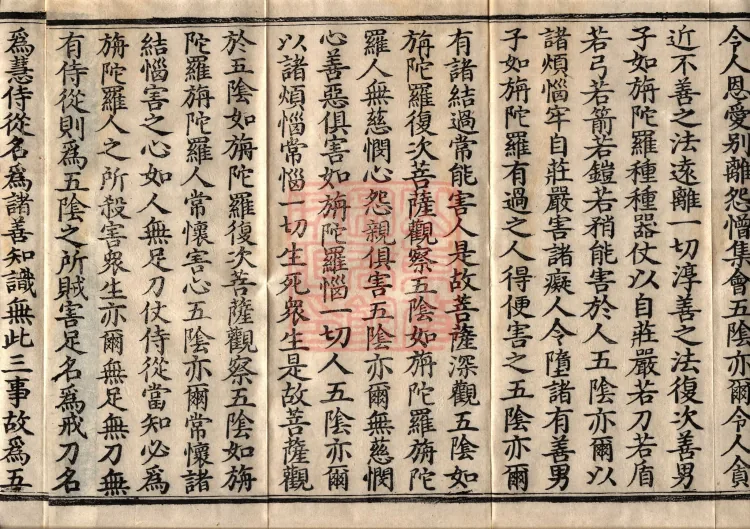 令人恩愛別離怨憎集會五陰亦爾令人貪
近不善之法遠離一切淳善之法復次善男
子如旃陀羅種種器仗以自莊嚴若刀若盾
若弓若箭若鎧若矟能害於人五陰亦爾以
諸煩惱牢自莊嚴害諸癡人令墮諸有善男
子如旃陀羅有過之人得便害之五陰亦爾
有諸結過常能害人是故菩薩深觀五陰如
旃陀羅復次菩薩觀察五陰如旃陀羅旃陀
羅人無慈愍心怨親俱害五陰亦爾無慈愍
心善惡俱害如旃陀羅惱一切人五陰亦爾
以諸煩惱常惱一切生死衆生是故菩薩觀
於五陰如旃陀羅復次菩薩觀察五陰如旃
陀羅旃陀羅人常懷害心五陰亦爾常懷諸
結惱害之心如人無足刀仗侍從當知必爲
旃陀羅人之所殺害衆生亦爾無足無刀無
有侍從則爲五陰之所賊害足名爲戒刀名
爲慧侍從名爲諸善知識無此三事故爲五